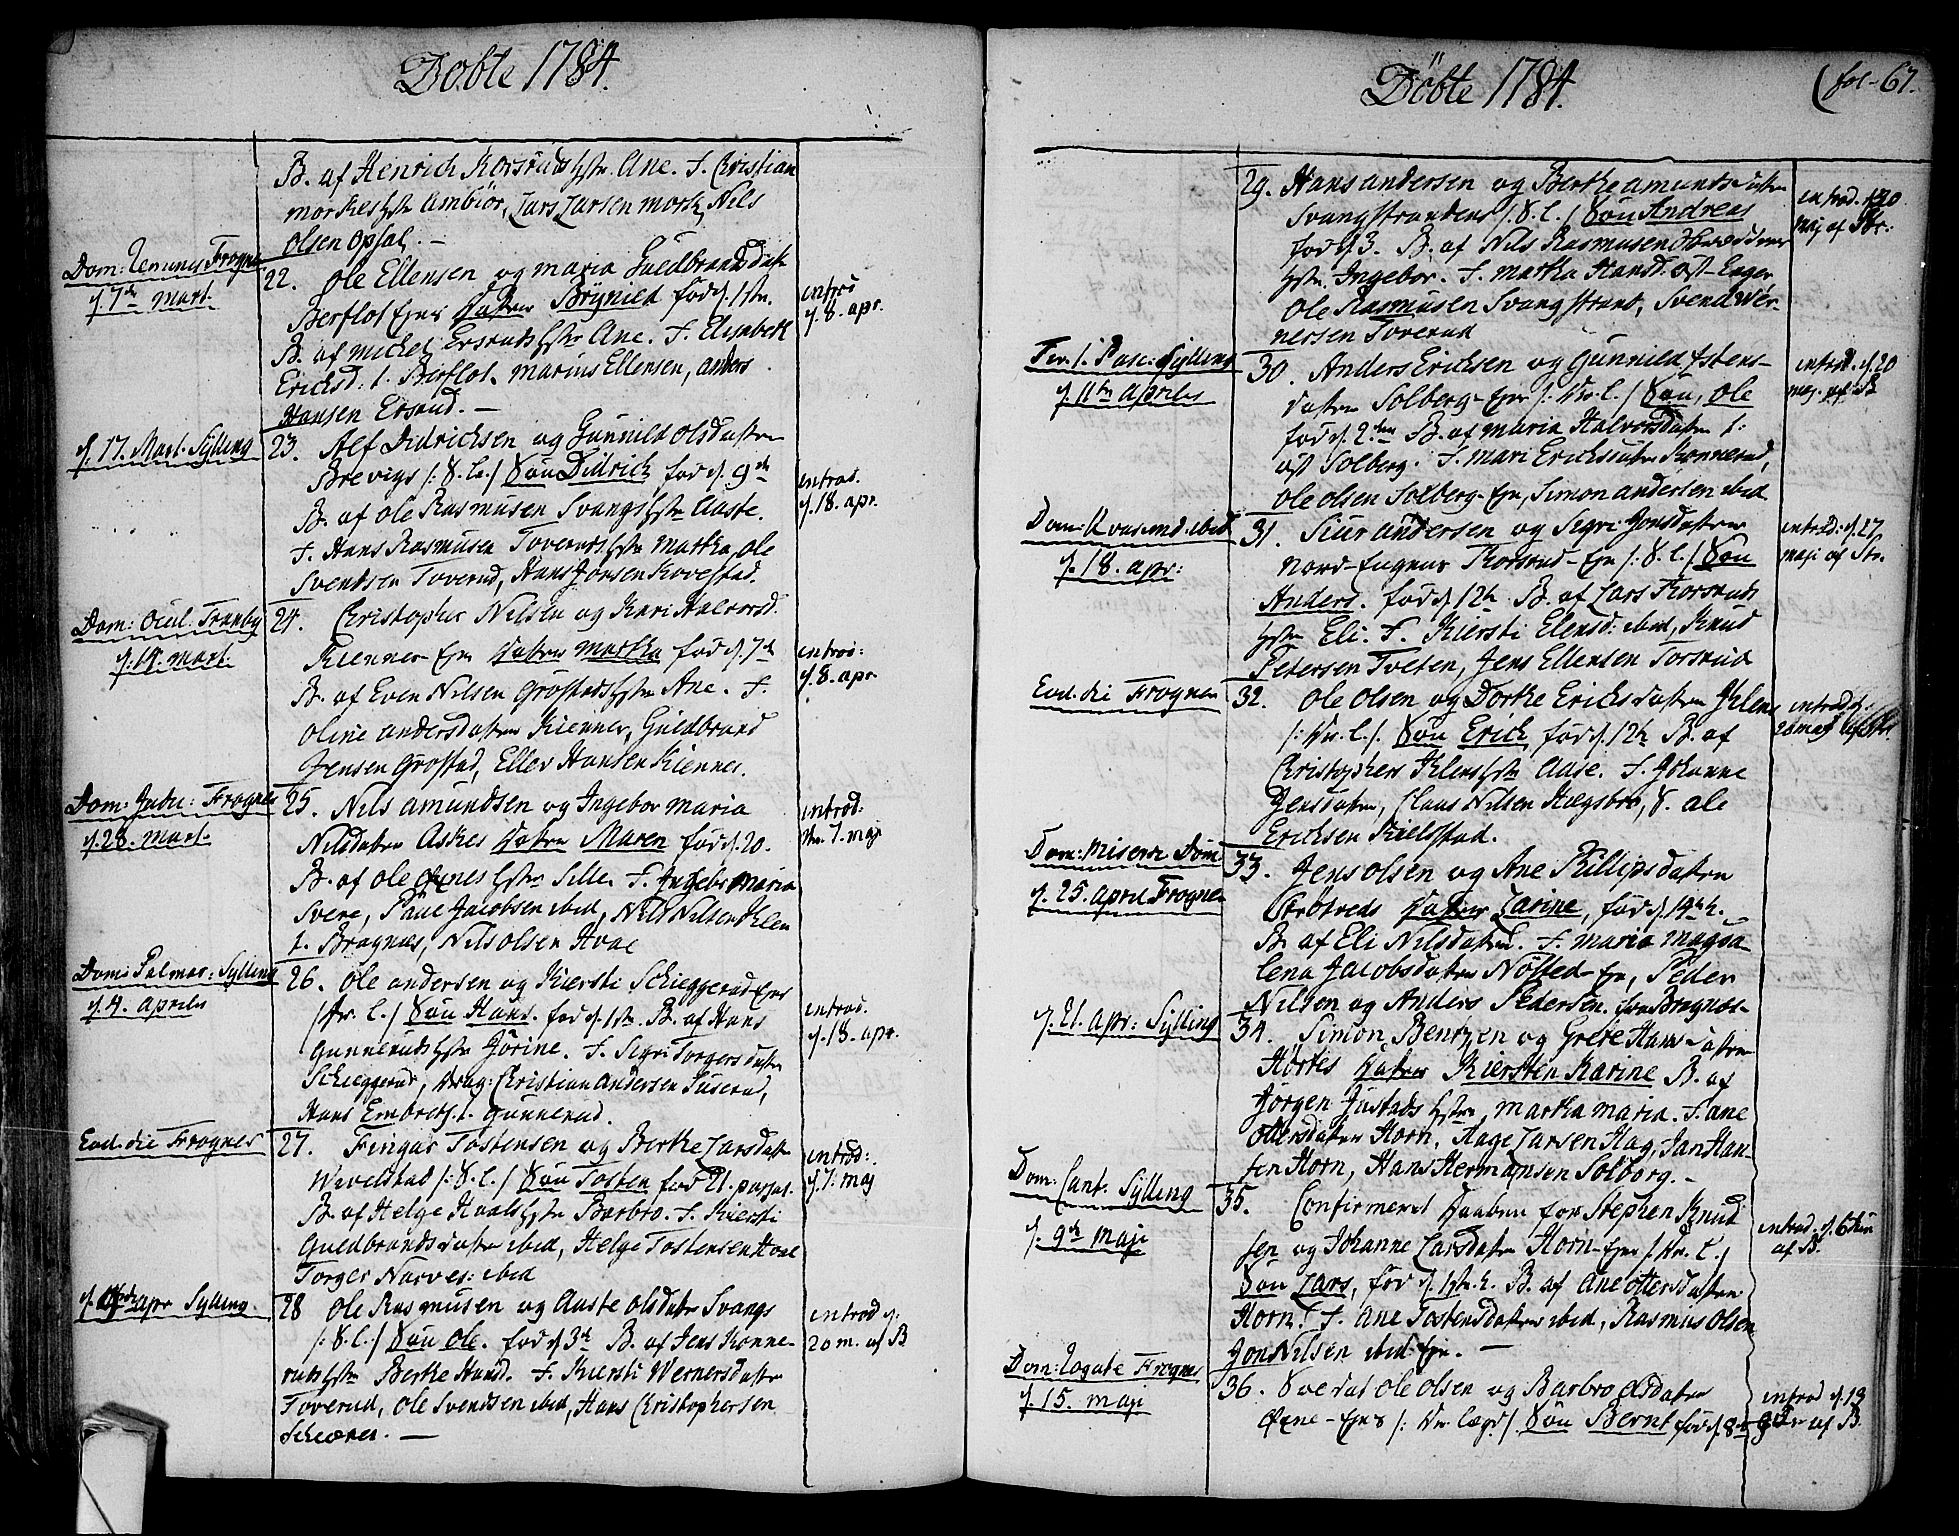 Døbte 1784.
B. af Henrich Korsruds hstr. Ane. F. Christian
morkes hstr Ambiør, Lars Larsen mork, Nils
olsen opsal. —
Dom: Remin: Frogner
d. 7de Mart.
22. Ole Ellensen og maria Guldbrandsdatr
Berflot Ejer Datter Brynild fød d. 1ste.
B. af michel Ersruds hstr Ane. F. Elisabeth
Ericksd. t. Berflot. Marius Ellensen, anders
Hansen Ersrud. —
introd
d. 8. apr.
d. 17. Mart. Sylling
23. Alf Didricksen og Gunnild olsdatter
Brevigs /: S. l. / Søn Didrich, fød d. 9de
B. af ole Rasmusen Svangs hstr Aaste.
F. Hans Rasmusen Toveruds hstr Martha, ole
Svendsen Toverud, Hans Jonsen Hovestad.
introd.
d. 18. apr.
Dom: Ocul. Tranby
d. 14. mart.
24. Christopher Nilsen og Kari Halvorsd.
Kienner Ejer Datter Martha fød d. 7de
B. af Even Nilsen Grøstads hstr Ane. F.
Oline andersdatter Kienner, Guldbrand
Jensen Grøstad, Ellev Hansen Kienner.
introd:
d. 8. apr
Dom: Judic: Frogner
d. 28. Mart.
25. Nils amundsen og Ingebor Maria
Nilsdatter Askes Datter Maren fød d. 20.
B. af ole hstr Sille F. Ingebor Maria
Svere, Paul Jacobsen ibid, Nils Nilsen Klen
t. Bragnæs, Nils olsen Hval
introd:
7. maj
Dom: Palmar: Sylling
d. 4. Aprilis
26. Ole andersen og Kiersti Schieggerud Ejer
/ Søn Hans. fød d. 1ste. B. af Hans
Gunneruds hstr Jørine. F. Sigri Torgersdatter
Schieggerud, Drag: Christian Andersen Suserud,
Hans Embretsf. t. Gunnerud.
introd.
d. 13. apr.
Eod. die Frogner
27. Fingar Tostensen og Berthe Larsdatr
Wevelstad /: S. l. / Søn Tosten fød 21. passat.
B. af Helge Hvals hstr Barbro. F. Kiersti
Guldbrandsdatter ibid, Helge Tostensen Hval
Torger Narves: ibid
introd:
d. 7. maj
apr Sylling.
28 Ole Rasmusen og Aaste olsdatr Svangs
/: S. l. / Søn Ole. fød d. 3de B. af Jens Konne-
ruds hstr Berthe Hansd. F. Kiersti Wernersdatter
Toverud, Ole Svendsen ibid, Hans Christophersen
Schiærer. —
introd d.
20 m. af B
Døbte 1784.
(fol-67.
29. Hans andersen og Berthe amundsdatter
Svangstrandens /. S. l. / Søn Andreas
fød d. 3. B. af Nils Rasmusen
hstr. Ingebor. F. Martha Hansd. øst-Enger
Ole Rasmusen Svangstrant, Svend Wer-
nersen Toverud
introd. d. 20
maj af Str:
Fer. 1. Pasc: Sylling
d. 11te Aprilis
30. Anders Ericksen og Gunnild Estens-
datter Solberg-Ejer /: Dr. l. / Søn, Ole
fød d. 2den B. af maria Halvorsdatter t:
øst Solberg. F. Mari Ericksdatter Konnerud,
ole olsen Solberg-Ejer, Simon andersen ibid
introd. d. 20
maj. af B
Dom: Quasimod. ibid
d. 18. apr:
31. Siur andersen og Sigri Jonsdatter
Nord-Eugner Korsrud-Ejer /: S. l. / Søn
Anders. fød d. 12te B. af Lars Korsruds
hstr Eli. F. Kiersti Elensd: ibid, Knud
Petersen Tveten, Jens Ellensen Torsrud
introd: d. 27
maji af Str.
Eod. die Frogner
32. Ole Olsen og Dorthe Ericksdatter Klens
/: Dr. l. /. Søn Erick, fød d. 12te B. af
Christophers Klens hstr Aase. F. Johanne
Jensdatter, Claus Nilsen Hægsbro, S. ole
Ericksen Kielstad.
introd d.
20 maj af Str.
Dom: Miseric Dom
d. 25. April Frogner
33. Jens olsen og Ane Phillipsdatter
Strøtveds Datter Larine, fød d. 14de.
B. af Eli Nilsdatter. F. maria Magda
lena Jacobsdatter Nøsted-Ejer, Peder
Nilsen og Anders Pedersen. fra Bragnæs-
d. 21. Apr: Sylling
34. Simon Bentzen og Grete Hansdatter
Hørtes Datter Kiersten Karine B. af
Jørgen Justads hstr, martha maria. F. ane
ottersdatter Horn, Aage Larsen Hag, Jan Han-
sen Horn, Hans Hermansen Solborg. —
Dom: Cant. Sylling
d. 9de maji
35. Confirmeret Daaben for Stephen Knud
sen og Johanne Larsdatter Horn-Ejer /. Dr. l. /
Søn Lars, fød d. 1ste. B. af Ane ottersdatter
Horn. F. Ane Tostensdatter ibid, Rasmus Olsen
Jon Nilsen ibid: Ejer. —
introd. d. 6 Jun
af B.
Dom: Rogate Frogner
d. 15. maji
36. Ole olsen og Barbro olsdatter
Øvne-Ejer /: Dr. Lægd / Søn Bernt fød d. 8de
introd d. 13
af B.